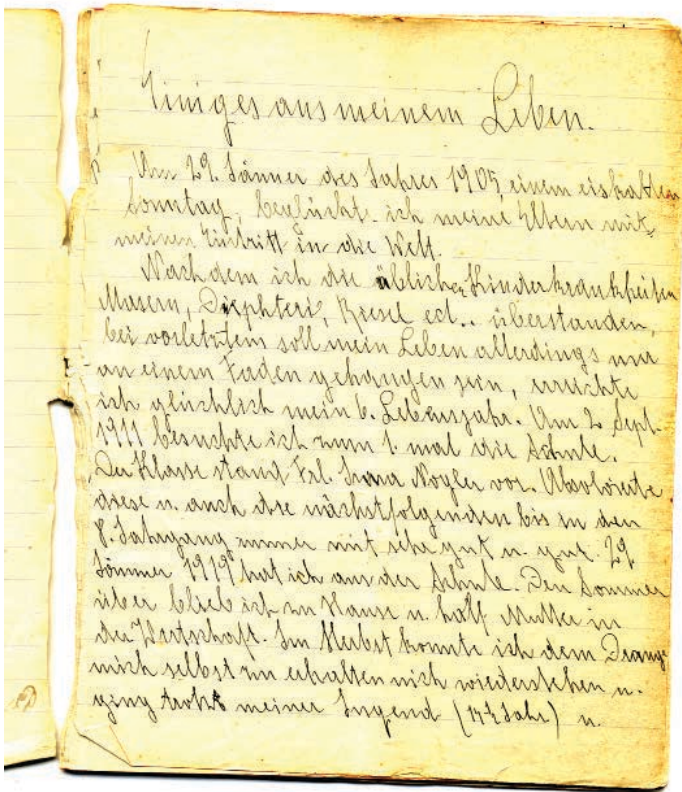 Einiges aus meinem Leben.
Am 29. Jänner des Jahres 1905, einem eiskalten
Sonntag, beglückte ich meine Eltern mit
meinen Eintritt in die Welt.
Nachdem ich die üblichen Kinderkrankheiten
Masern, Diephteri, Riesel ect.. überstanden,
bei vorletztem soll mein Leben allerdings nur
an einem Faden gehangen sein, erreichte
ich glücklich mein 6. Lebensjahr. Am 2. Sept.
1911 besuchte ich zum 1. mal die Schule.
Der Klasse stand Frl. Nogler vor. Absolvierte
diese u. auch die nächstfolgenden bis in den
8. Jahrgang immer mit sehr gut u. gut. 29
Jänner 1919 trat ich aus der Schule. Den Sommer
über blieb ich zu Hause u. half Mutter in
der Wirtschaft. Im Herbst konnte ich dem Drange
mich selbst zu erhalten nich wiederstehen u.
ging trotz meiner Jugend (14½ Jahr) u.